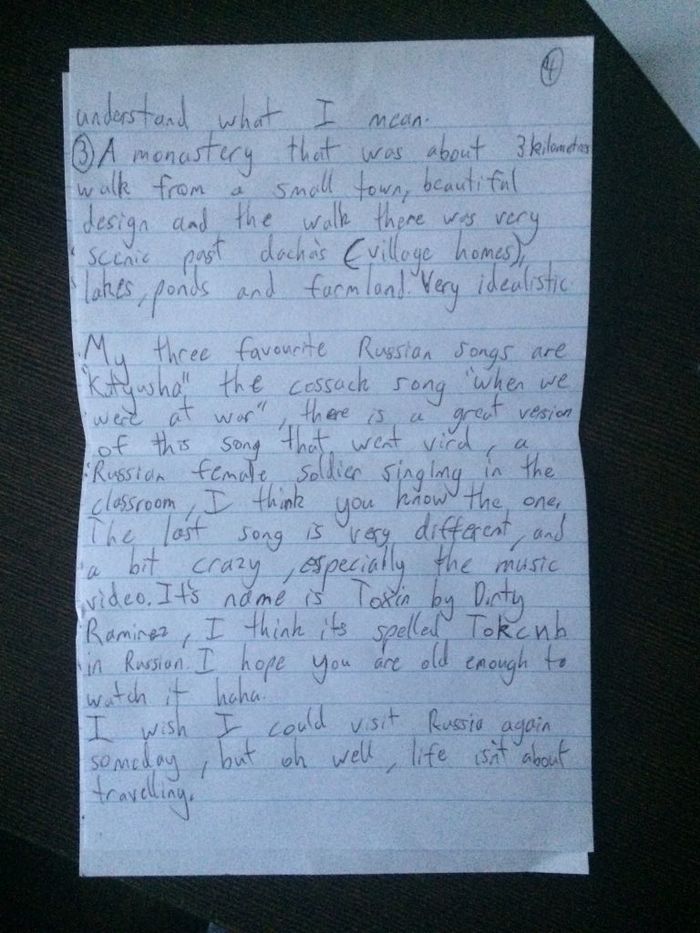 4
understand what I mean.
3 A monastery that was about 3 kilometres
walk from a small town, beautiful
design and the walk there was very
scenic past dacha's (village homes),
lakes, ponds and farmland. Very idealistic.
My three favourite Russian songs are
"Katyusha" the cossack song "when we
were at war", there is a great vesion
of this song that went viral, a
Russian female soldier singing in the
classroom, I think you know the one,
The last song is very different, and
a bit crazy, especially the music
video. It's name is Toxin by Dirty
Ramirez, I think its spelled Tokcnh
in Russian. I hope you are old enough to
watch it haha.
I wish I could visit Russia again
someday, but oh well, life isn't about
travelling.